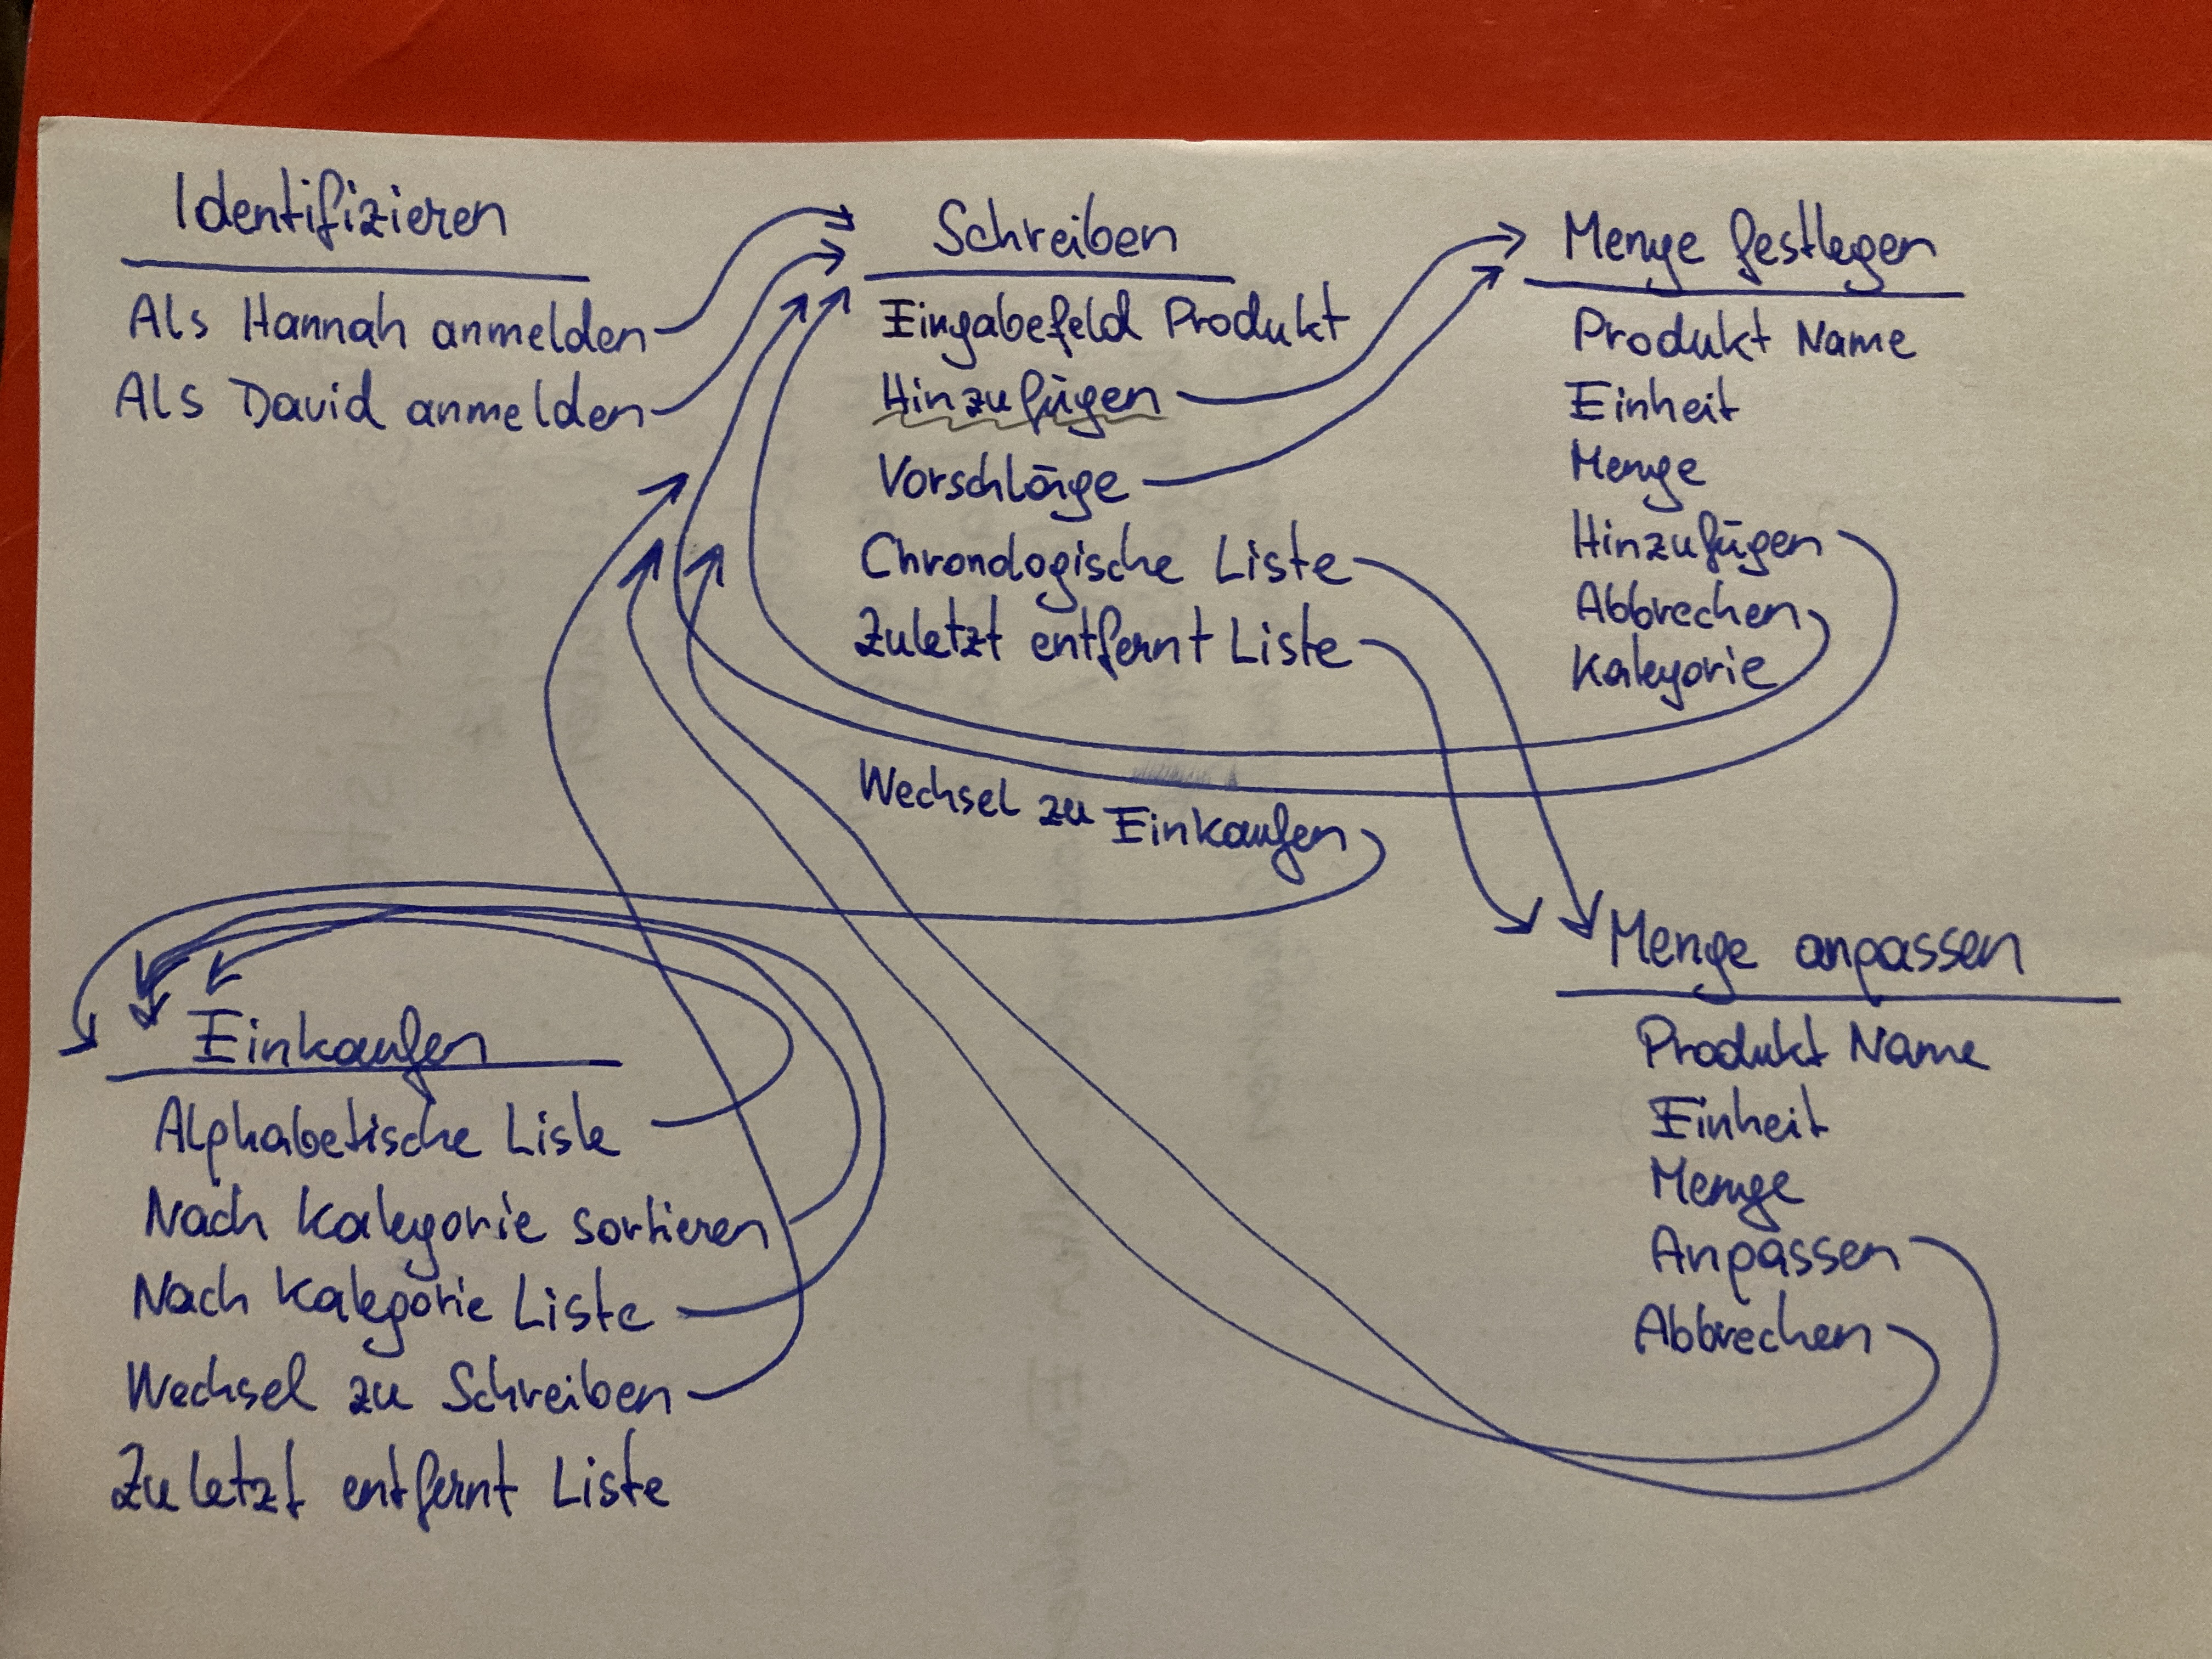 Identifizieren
Als Hannah anmelden
Als David anmelden
Schreiben
Eingabefeld Produkt
Hinzufügen
Vorschläge
Chronologische Liste
Zuletzt entfernt Liste
Wechsel zu Einkaufen
Menge festlegen
Produkt Name
Einheit
Menge
Hinzufügen
Abbrechen
Kategorie
Einkaufen
Alphabetische Liste
Nach Kategorie sortieren
Nach Kategorie Liste
Wechsel zu Schreiben
Zuletzt entfernt Liste
Menge anpassen
Produkt Name
Einheit
Menge
Anpassen
Abbrechen